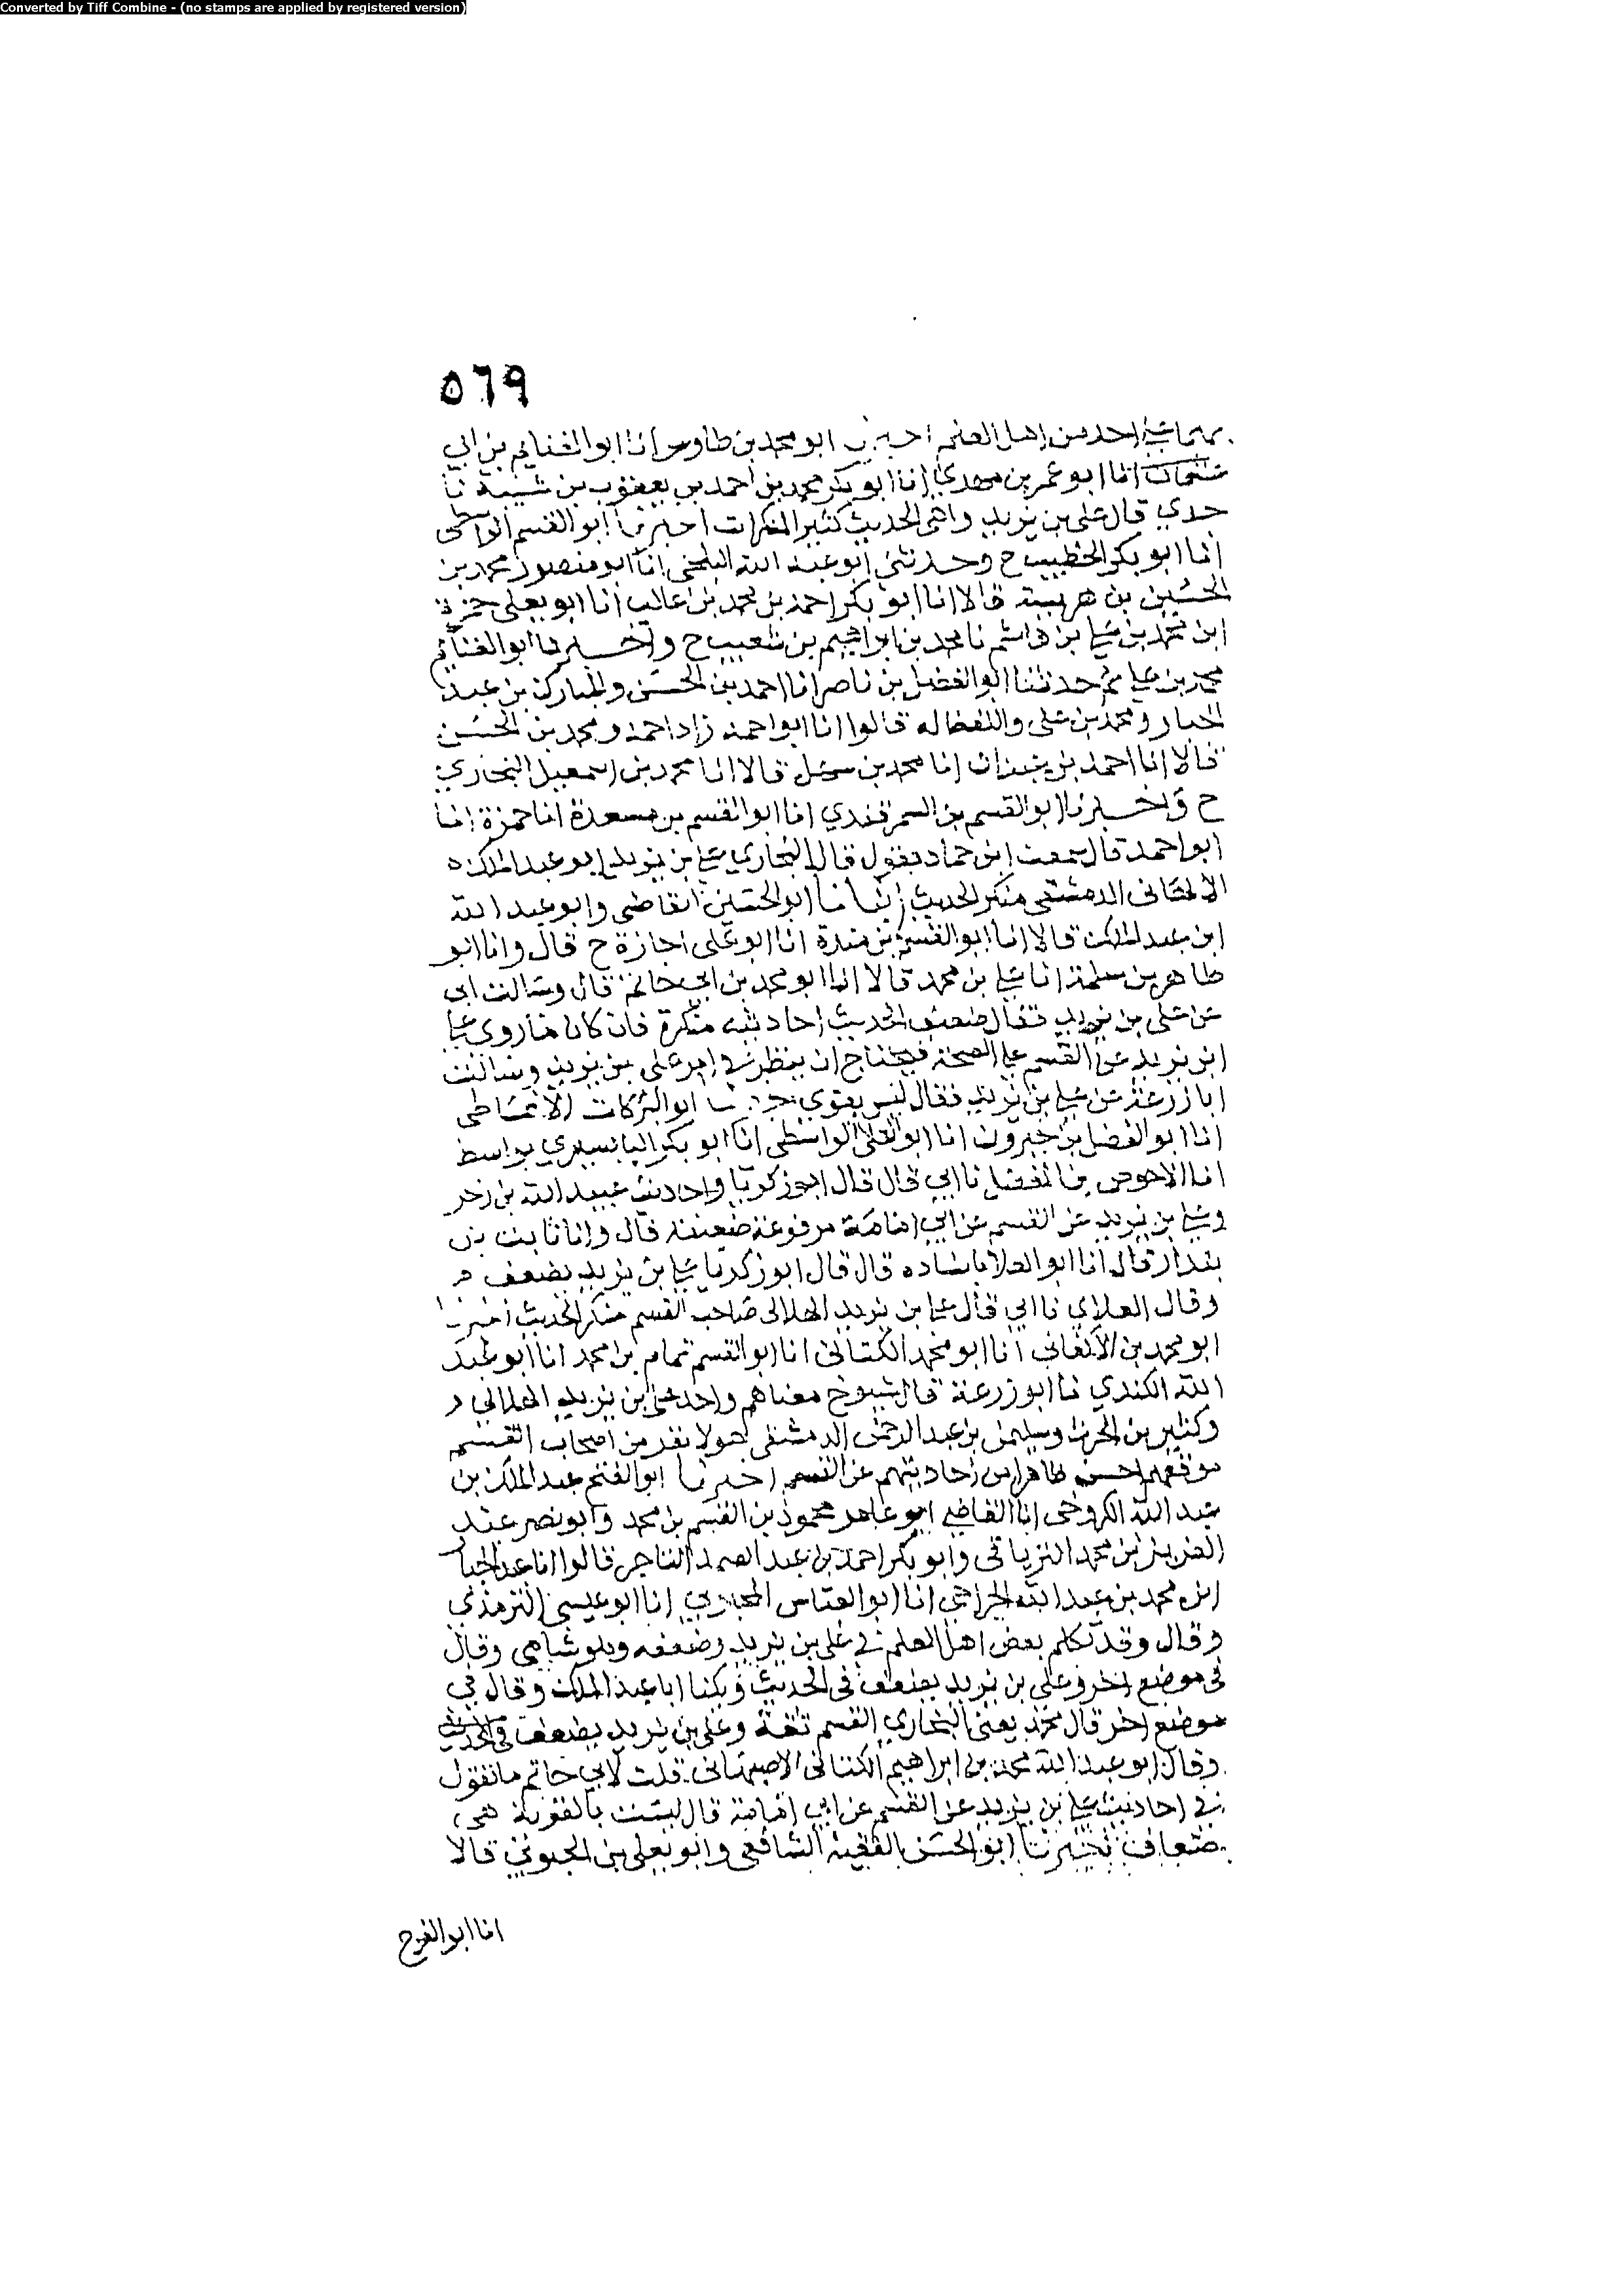 Converted by Tiff Combine - (no stamps are applied by registered version)
٥٦٩
احد من اهل العلم ابو محمد بن طاوس انا ابو الغنايم بن ابي
عثمان انا ابو عمر بن مهدي انا ابو بكر محمد بن احمد بن يعقوب بن شيبة نا
جدي قال علي بن يزيد واهي الحديث كثير المنكرات اخبرنا ابو القسم الواسطي
انا ابو بكر الخطيب ح وحدثني ابو عبد الله البلخي انا ابو منصور محمد بن
الحسين بن هريسة قالا انا ابو بكر احمد بن محمد بن غالب انا ابو يعلي حمزة
ابن محمد بن علي بن هاشم نا محمد بن ابراهيم بن شعيب ح واخبرنا ابو الغنايم
محمد بن علي ثم حدثنا ابو الفضل بن ناصر انا احمد بن الحسن والمبارك بن عبد
الجبار ومحمد بن علي واللفظ له قالوا انا ابو احمد زاد احمد ومحمد بن الحسن
قالا انا احمد بن عبدان انا محمد بن سهل قالا انا محمد بن اسمعيل البخاري
ح واخبرنا ابو القسم بن السمرقندي انا ابو القسم بن مسعدة انا حمزة انا
ابو احمد قال سمعت ابن حماد يقول قال البخاري علي بن يزيد ابو عبد الملك
الالهاني الدمشقي منكر الحديث انبانا ابو الحسين القاضي وابو عبد الله
ابن عبد الملك قالا انا ابو القسم بن مندة انا ابو علي اجازة ح قال وانا ابو
طاهر بن سلمة انا علي بن محمد قالا انا ابو محمد بن ابي حاتم قال وسالت ابي
عن علي بن يزيد فقال ضعيف الحديث احاديثه منكرة فان كان ما روي علي
ابن يزيد عن القسم علي الصحة فيحتاج ان ينظر في امر علي بن يزيد وسالت
ابا زرعة عن علي بن يزيد فقال ليس بقوي ابو البركات الانماطي
انا ابو الفضل بن خيرون انا ابو العلا الواسطي انا ابو بكر البابسيري بواسط
انا الاحوص بن المفضل نا ابي قال قال ابو زكريا واحاديث عبيد الله بن زحر
وعلي بن يزيد عن القسم عن ابي امامة مرفوعة ضعيفة قال وانا ثابت بن
بندار قال انا ابو العلا باسناده قال قال ابو زكريا علي بن يزيد يضعف
وقال العلاي نا ابي قال علي بن يزيد الهلالي صاحب القسم منكر الحديث اخبرنا
ابو محمد بن الاكفاني انا ابو محمد الكتاني انا ابو القسم تمام بن محمد انا ابو عبد
الله الكندي نا ابو زرعة قال شيوخ معناهم واحد علي بن يزيد الهلالي
وكثير بن الحرث وسليمن بن عبد الرحمن الدمشقي هولا نفر من اصحاب القسم
احسن ظاهرا من احاديثهم عن القسم اخبرنا ابو الفتح عبد الملك بن
عبد الله الكروخي انا القاضي ابو عامر محمود بن القسم بن محمد وابو نصر عبد
العزيز بن محمد الترياقي وابو بكر احمد بن عبد الصمد التاجر قالوا انا عبد الجبار
ابن محمد بن عبد الله الجراحي انا ابو العباس المحبوبي انا ابو عيسي الترمذي
وقال وقد تكلم بعض اهل العلم في علي بن يزيد وضعفه وهو شامي وقال
في موضع اخر وعلي بن يزيد يضعف في الحديث ويكنا ابا عبد الملك وقال في
موضع اخر قال محمد يعني البخاري القسم ثقة وعلي بن يزيد يضعف في الحديث
وقال ابو عبد الله محمد بن ابراهيم الكناني الاصبهاني قلت لابي حاتم ما تقول
في احاديث علي بن يزيد عن القسم عن ابي امامة قال ليست بالقوية هي
ضعاف اخبرنا ابو الحسن الفقيه الشافعي وابو يعلي بن الحبوبي قالا
انا ابو الفرج